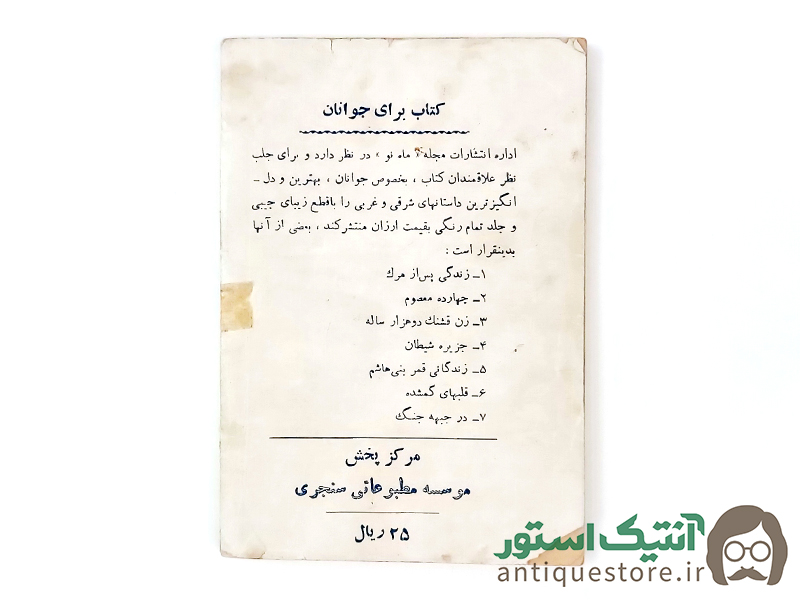 کتاب برای جوانان
اداره انتشارات مجله « ماه نو » در نظر دارد و برای جلب
نظر علاقمندان کتاب ، بخصوص جوانان ، بهترین و دل ـ
انگیزترین داستانهای شرقی و غربی را باقطع زیبای جیبی
و جلد تمام رنگی بقیمت ارزان منتشرکند ، بعضی از آنها
بدینقرار است :
۱ـ زندگی پس‌از مرگ
۲ـ چهارده معصوم
۳ـ زن قشنك دوهزار ساله
۴ـ جزیره شیطان
۵ـ زندگانی قمر بنی‌هاشم
۶ـ قلبهای گمشده
۷ـ در جبهه جنگ
مرکز پخش
موسسه مطبوعاتی سنجری
۲۵ ریال
آنتیک استور
antiquestore.ir